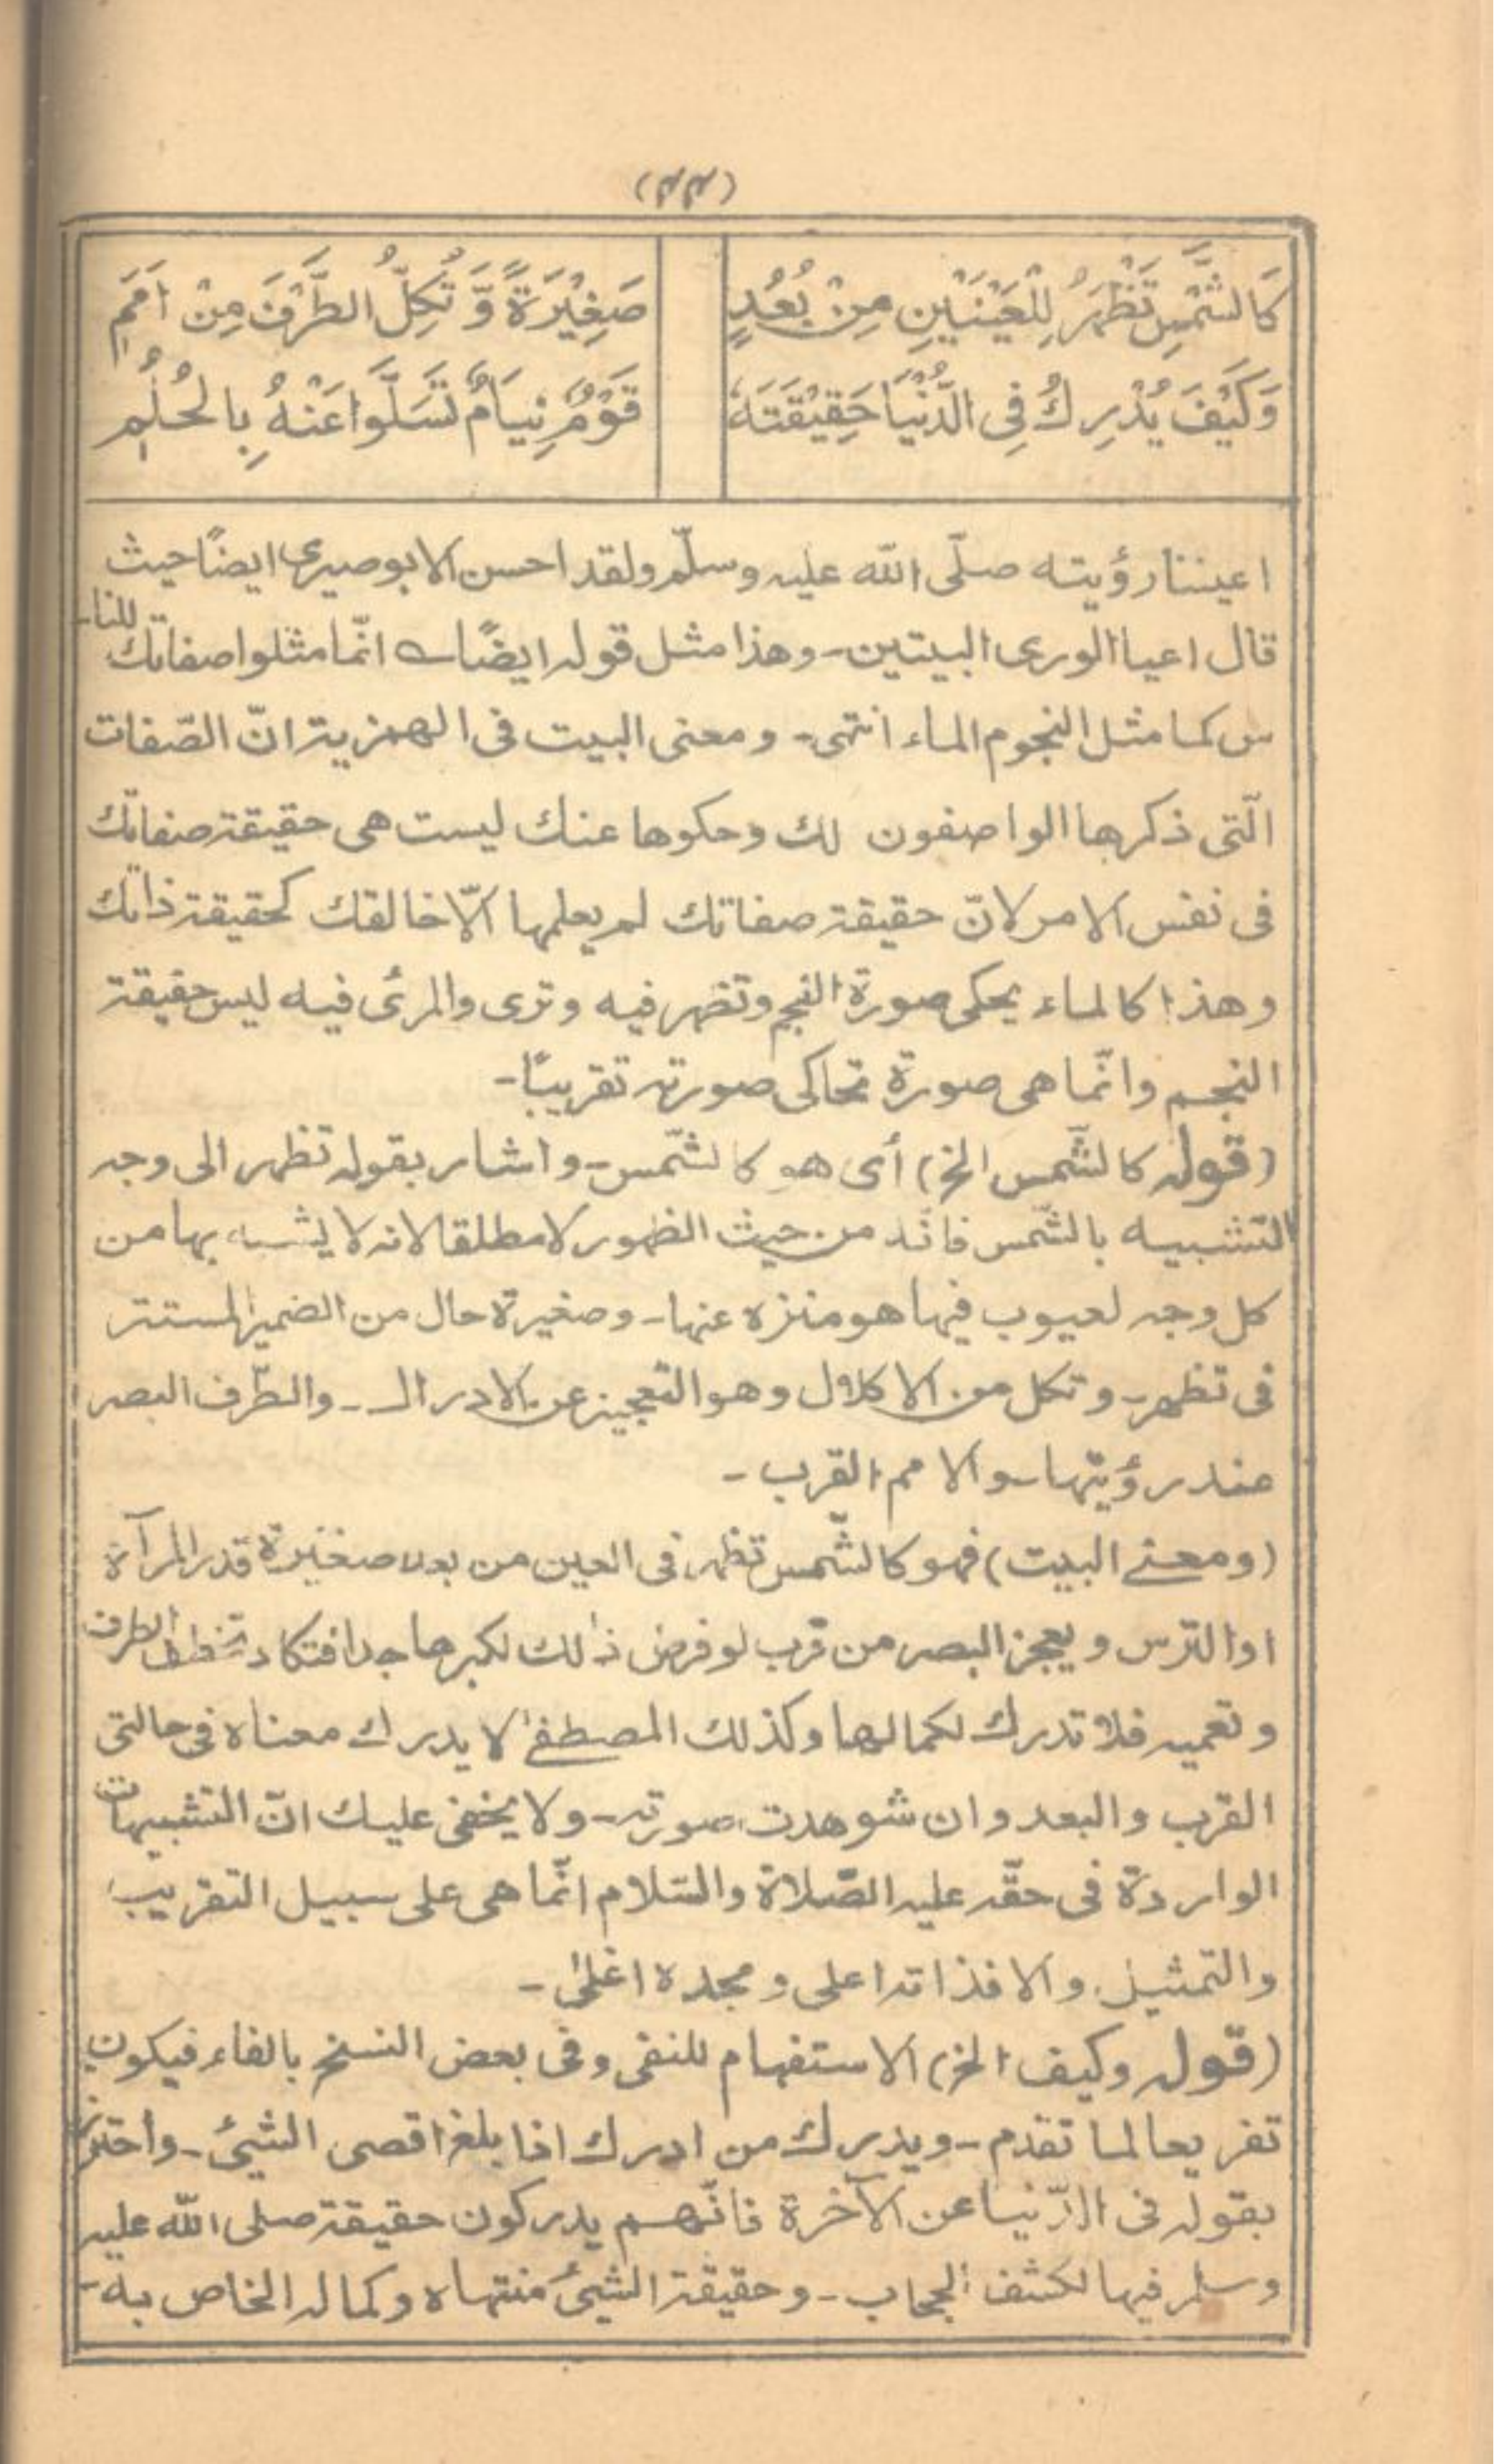 (٤٤)
كَالشَّمْسِ تَظْهَرُ لِلْعَيْنَيْنِ مِنْ بُعُدٍ صَغِيْرَةً وَّتُكِلُّ الطَّرْفَ مِنْ اَمَمٖ
وَكَيْفَ يُدْرِكُ فِى الدُّنْيَا حَقِيْقَتَهٗ قَوْمٌ نِيَامٌ تَسَلَّوْا عَنْهُ بِالْحُلُمٖ
اعيننا رؤيته صلّى الله عليه وسلّم ولقد احسن الابوصيرى ايضًا حيث
قال اعيا الورى البيتين - وهذا مثل قوله ايضًا انّما مثلوا صفاتك للنا-
س كما مثل النجوم الماء انتهى - ومعنى البيت فى الهمزية انّ الصّفات
الّتى ذكرها الواصفون لك وحكوها عنك ليست هى حقيقة صفاتك
فى نفس الامر لانّ حقيقة صفاتك لم يعلمها الّا خالقك كحقيقة ذاتك
وهذا كالماء يحكى صورة النجم وتظهر فيه وترى والمرئى فيه ليس حقيقة
النجم وانّما هى صورة تحاكى صورته تقريبًا -
(قوله كالشّمس الخ) أى هو كالشّمس - واشار بقوله تظهر الى وجه
التشبيه بالشّمس فانّه من حيث الظهور لا مطلقا لانه لا يشبه بها من
كل وجه لعيوب فيها هو منزه عنها - وصغيرة حال من الضمير المستتر
فى تظهر - وتكل من الاكلال وهو التعجيز عن الادراك - والطّرف البصر
عند رؤيتها - والامم القرب -
(ومعنے البيت) فهو كالشّمس تظهر فى العين من بعد صغيرة قدر المرآة
اوالترس ويعجز البصر من قرب لو فرض ذٰلك لكبرها جدا فتكاد تخطف الطرف
وتعميه فلا تدرك لكمالها وكذلك المصطفٰے لا يدرك معناه فى حالتى
القرب والبعد وان شوهدت صورته - ولا يخفى عليك انّ التشبيهات
الواردة فى حقّه عليه الصّلاة والسّلام انّما هى على سبيل التقريب
والتّمثيل والا فذاته اعلى ومجده اغلىٰ -
(قوله وكيف الخ) الاستفهام للنفى وفى بعض النسخ بالفاء فيكون
تفريعا لما تقدم - ويدرك من ادرك اذا بلغ اقصى الشيئ - واحترز
بقوله فى الدّنيا عن الآخرة فانّهم يدركون حقيقة صلى الله عليه
وسلم فيها لكشف الحجاب - وحقيقة الشيئ منتهاه وكماله الخاص به -